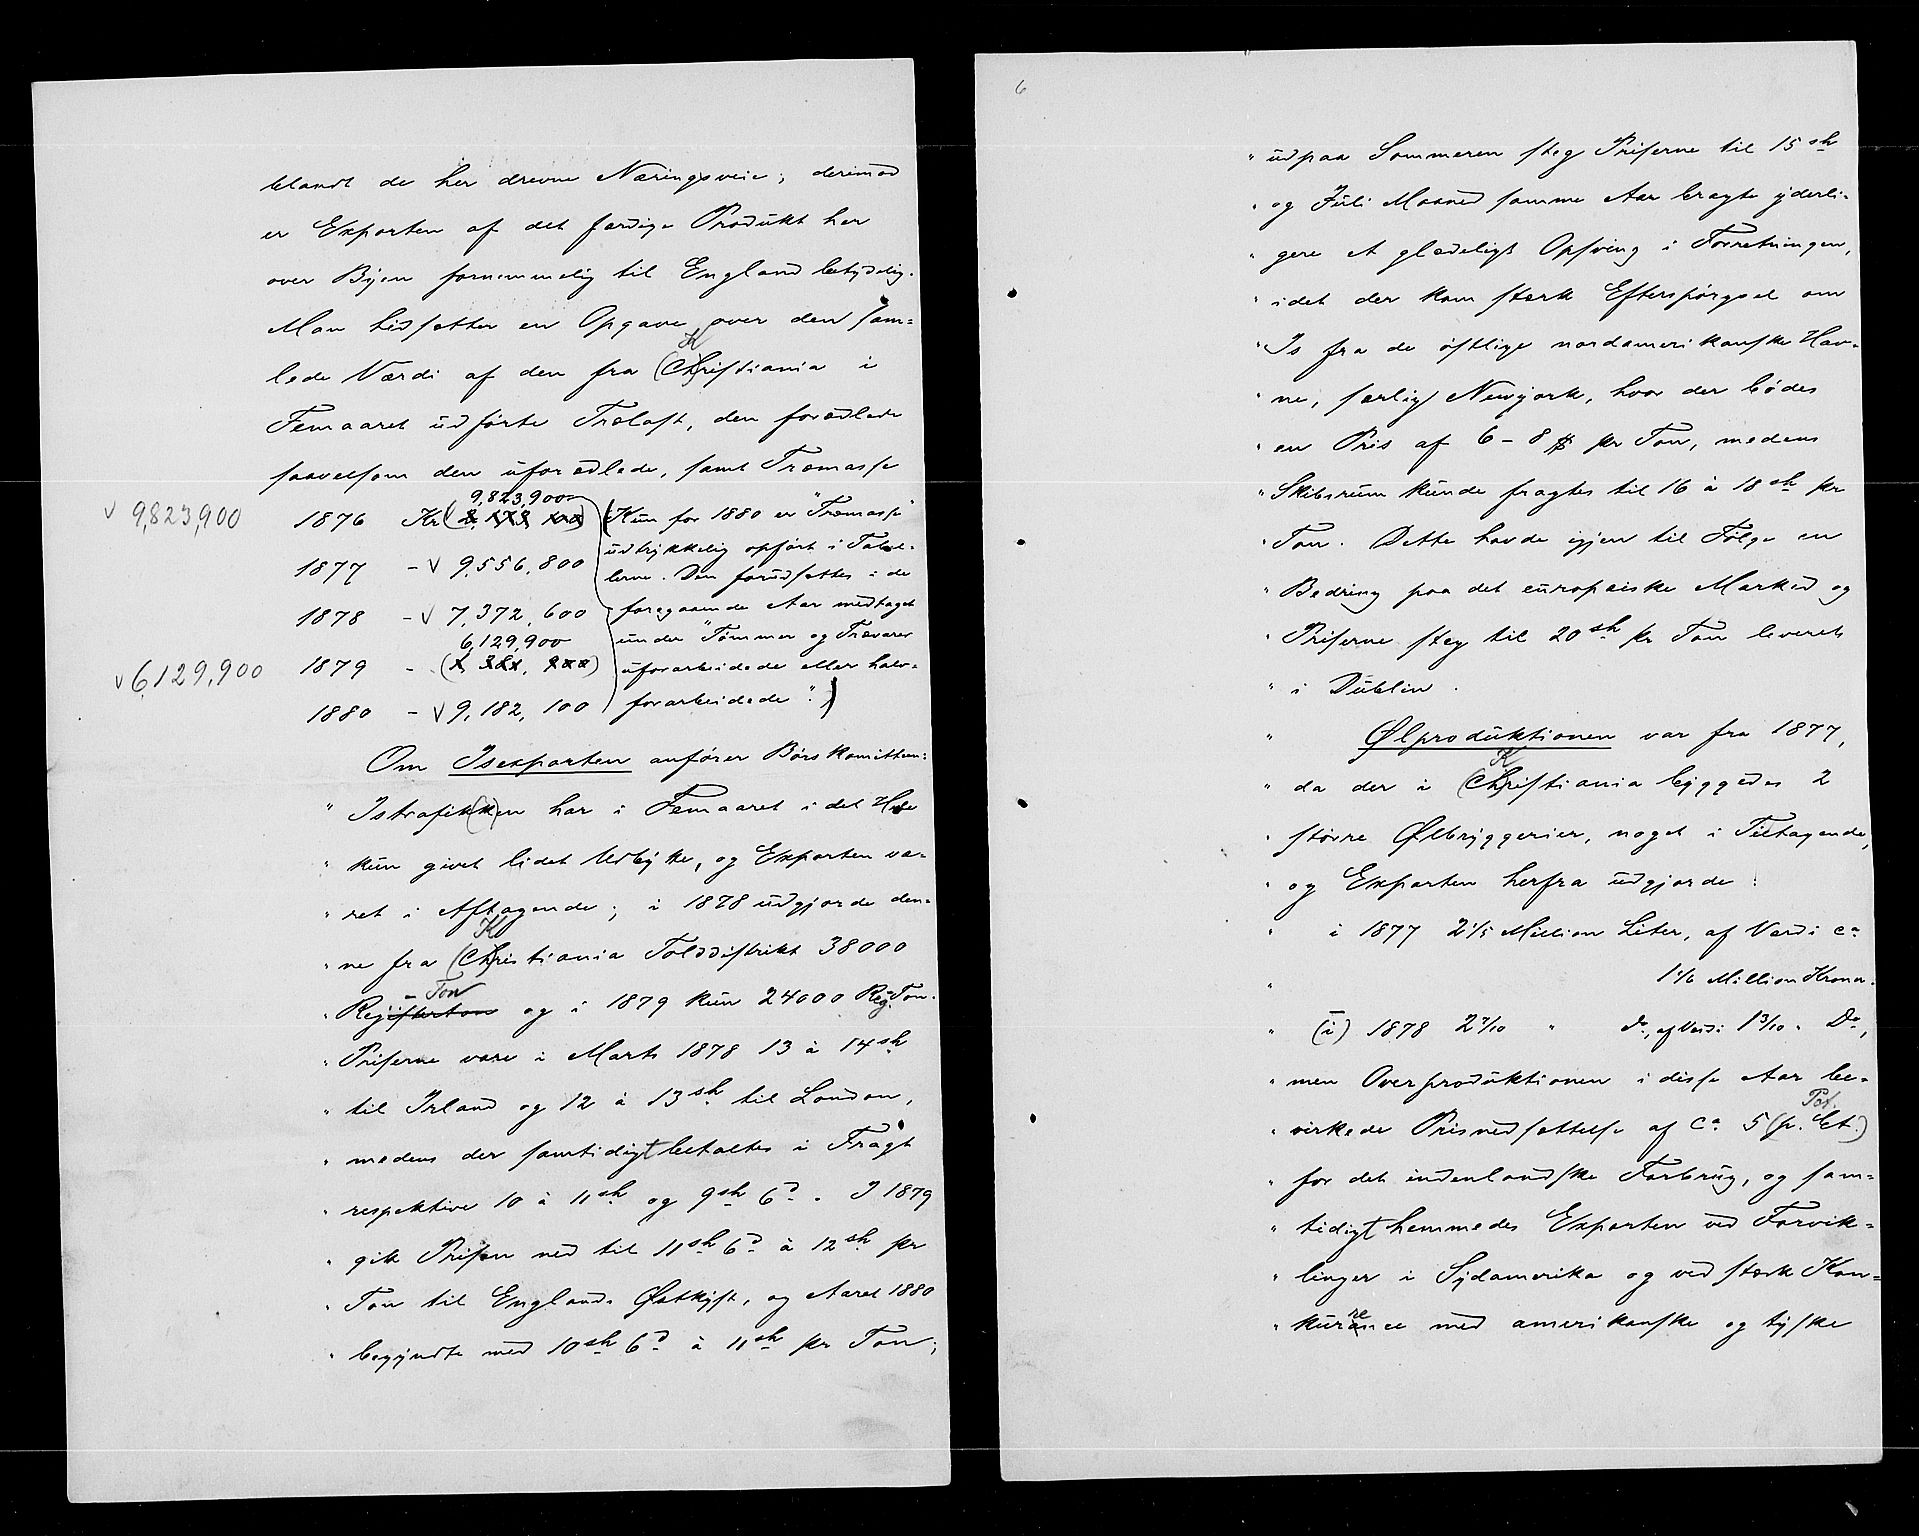 blandt de her drevne Næringsveie; derimod
er Exporten af det færdige Produkt her
over Byen fornemmelig til England betydelig.
Man hidsætter en Opgave over den sam=
K
lede Værdi af den fra (Ch)ristiania i
Femaaret udførte Trælast, den forædlede
saavelsom den uforædlede, samt Træmasse
9,823,900
v 9,823,900
1876 Kr (Kun for 1880 er "Træmasse"
udtrykkelig opført i Tabel=
1877 - v 9,556,800
lerne. Den forudsættes i de
1878 - v 7,372,600 foregaaende Aar medtaget
6,129,900 under "Tømmer og Trævarer
v 6,129,900
1879 - uforarbeidede eller halv=
1880 - v 9,182,100 forarbeidede".)
Om Isexporten anfører Børskomitteen:
" Istrafik(k)en har i Femaaret i det Hele
" kun givet lidet Udbytte, og Exporten væ=
" ret i Aftagende; i 1878 udgjorde den=
K
" ne fra (Ch)ristiania Tolddistrikt 38000
- Ton
" Registerton og i 1879 kun 24000 Reg. Ton.
" Priserne vare i Marts 1878 13 à 14 sh
" til Irland og 12 à 13 sh. til London,
" medens der samtidigt betaltes i Fragt
" respektive 10 à 11 sh og 9 sh 6 d. I 1879
" gik Prisen ned til 11 sh 6 d à 12 sh pr
" Ton til Englands Østkyst, og Aaret 1880
" begyndte med 10 sh 6 d à 11 sh pr Ton;
6
" udpaa Sommeren steg Priserne til 15 sh
" og Juli Maaned samme Aar bragte yderli=
" gere et glædeligt Opsving i Forretningen,
" idet der kom stærk Efterspørgsel om
" Is fra de østlige nordamerikanske Hav=
" ne, særlig Newyork, hvor der bødes
" en Pris af 6-8 $ pr Ton, medens
" Skibsrum kunde fragtes til 16 à 18 sh pr
" Ton. Dette havde igjen til Følge en
" Bedring paa det europæiske Marked og
" Priserne steg til 20 sh pr Ton leveret
" i Dublin.
" Ølproduktionen var fra 1877,
K
" da der i (Ch)ristiania byggedes 2
" større Ølbryggerier, noget i Tiltagende,
" og Exporten herfra udgjorde:
" i 1877 2 1/5 Million Liter, af Værdi ca
" 1 1/6 Million Kroner.
" (i) 1878 2 7/10 " do, af Værdi 1 3/10 " Do,
" men Overproduktionen i disse Aar be=
Pct.
" virkede Prisnedsættelse af ca 5 (p. Ct.)
" for det indenlandske Forbrug, og sam=
" tidigt hemmedes Exporten ved Forvik=
" linger i Sydamerika og ved stærk Kon=
re
" kurance med amerikanske og tyske